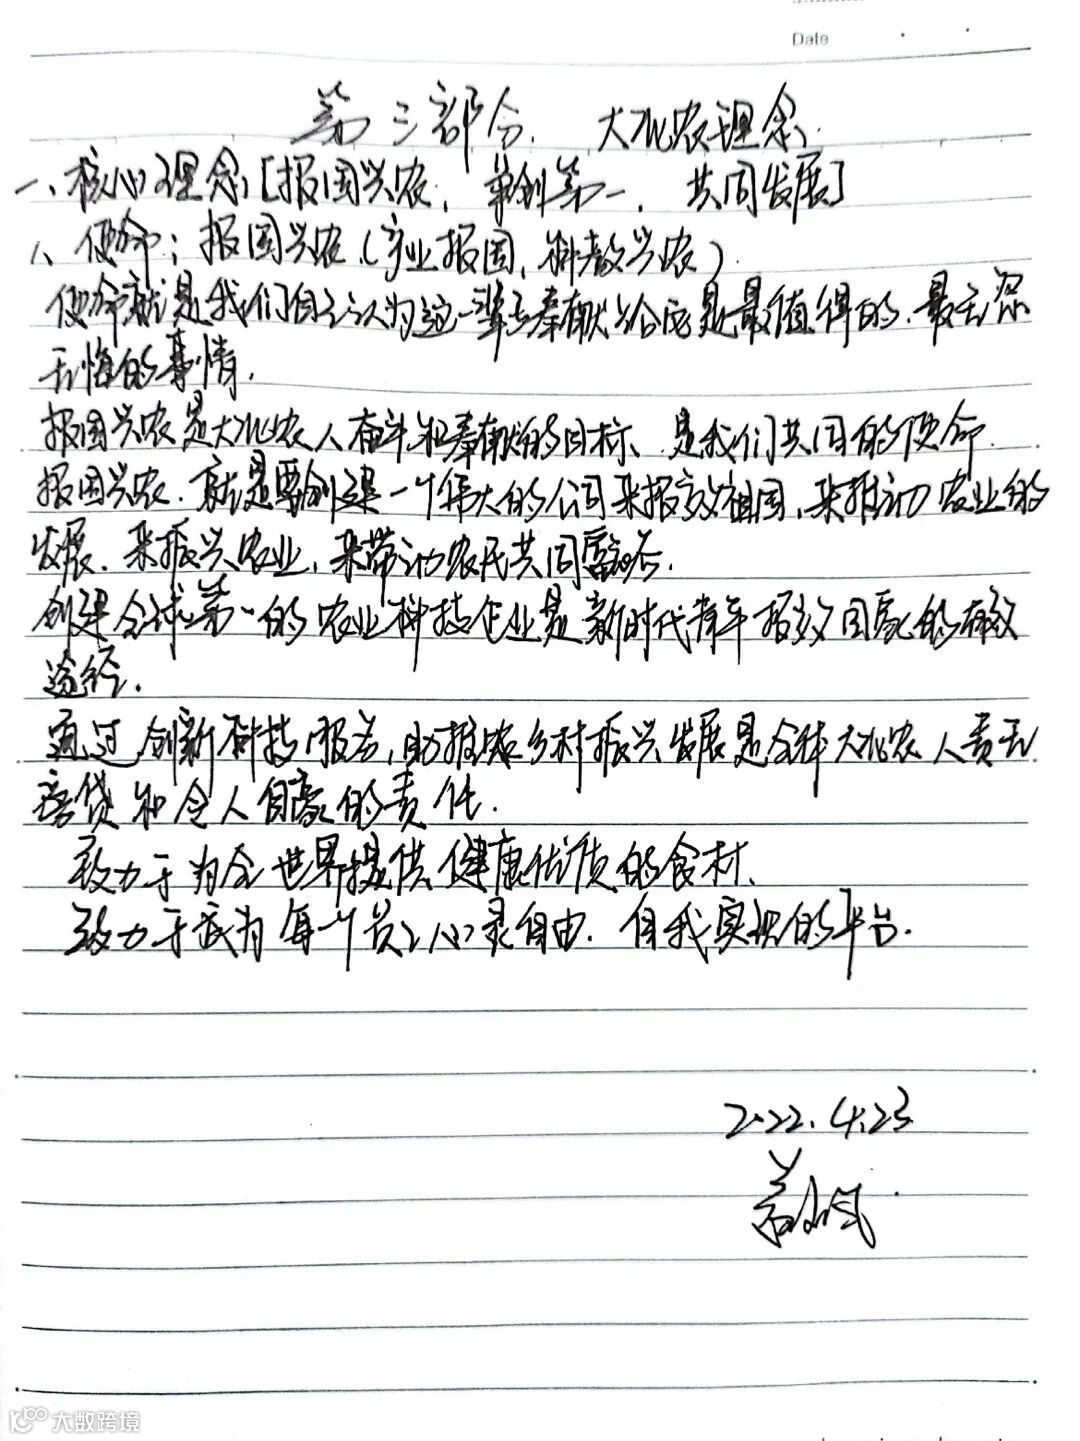 Date
第三部分. 大北农理念
一、核心理念[报国兴农, 争创第一, 共同发展]
1、使命: 报国兴农 (产业报国, 科教兴农)
使命就是我们自己认为这一辈子奉献给它是最值得的、最无怨
无悔的事情.
报国兴农是大北农人奋斗和奉献的目标、是我们共同的使命.
报国兴农. 就是要创建一个伟大的公司来报效祖国, 来推动农业的
发展. 来振兴农业, 来带动农民共同富裕.
创建全球第一的农业科技企业是新时代青年报效国家的有效
途径.
通过创新科技报答, 助推农乡村振兴发展是全体大北农人责无
旁贷和令人自豪的责任.
致力于为全世界提供健康优质的食材.
致力于成为每个员工心灵自由. 自我实现的平台.
2022.4.23
大数跨境